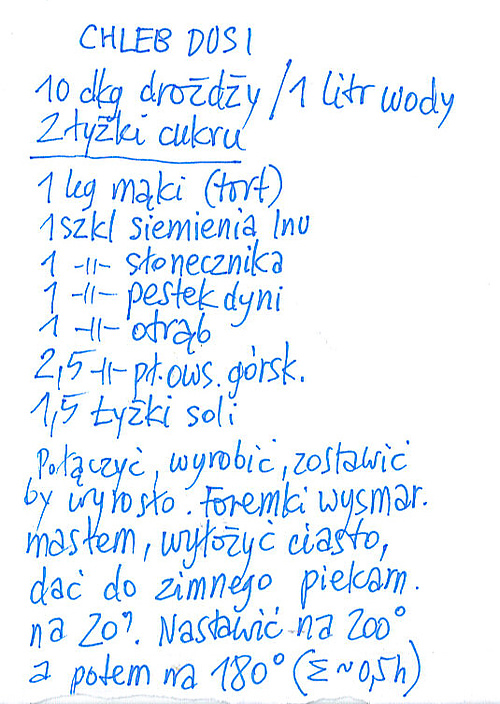 CHLEB DOSI
10 dkg drożdży / 1 litr wody
2 łyżki cukru
1 kg mąki (tort)
1 szkl siemienia lnu
1 -||- słonecznika
1 -||- pestek dyni
1 -||- otrąb
2,5 -||- pł. ows. górsk.
1,5 łyżki soli
Połączyć, wyrobić, zostawić
by wyrosło. Foremki wysmar.
masłem, wyłożyć ciasto,
dać do zimnego piekarn.
na 20'. Nastawić na 200°
a potem na 180° (Σ ~ 0,5h)